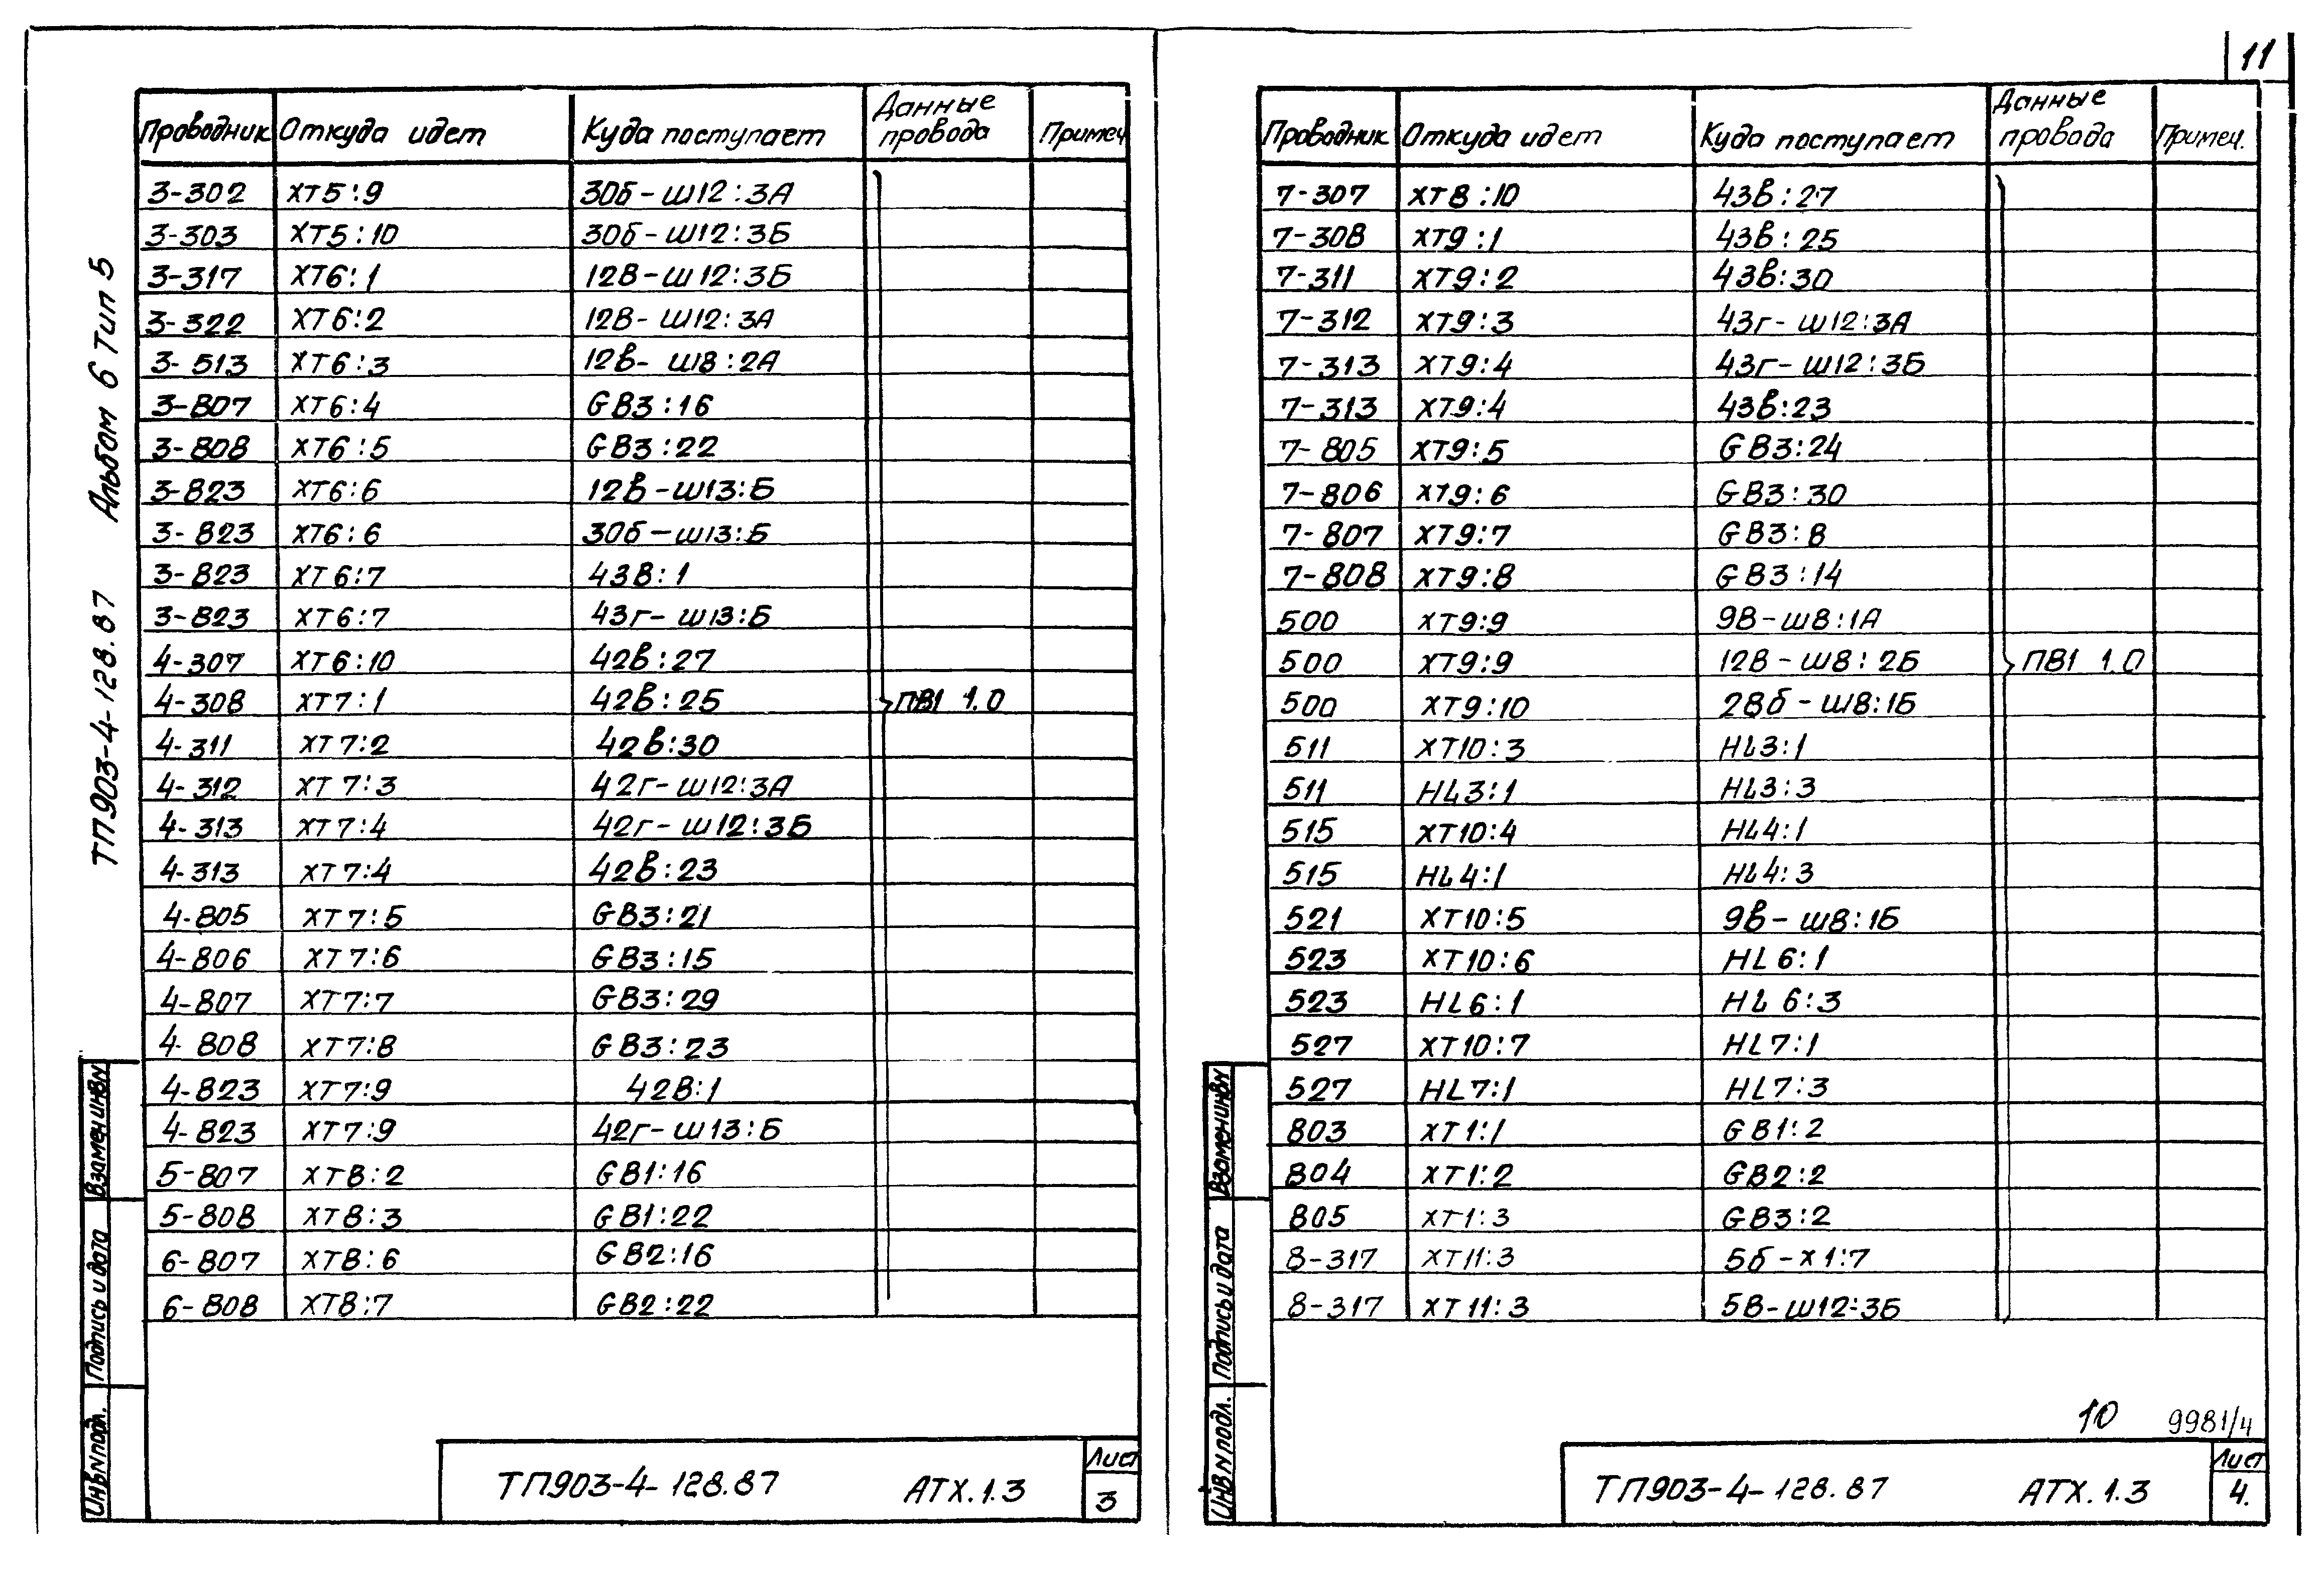 11
Альбом 6 Тип 5
ТП903-4-128.87
Проводник Откуда идет Куда поступает Данные провода Примеч
3-302 ХТ5:9 30б-Ш12:3А
3-303 ХТ5:10 30б-Ш12:3Б
3-317 ХТ6:1 12В-Ш12:3Б
3-322 ХТ6:2 12В-Ш12:3А
3-513 ХТ6:3 12в-Ш8:2А
3-807 ХТ6:4 GB3:16
3-808 ХТ6:5 GB3:22
3-823 ХТ6:6 12в-Ш13:Б
3-823 ХТ6:6 30б-Ш13:Б
3-823 ХТ6:7 43В:1
3-823 ХТ6:7 43г-Ш13:Б
4-307 ХТ6:10 42в:27
4-308 ХТ7:1 42в:25 ПВ1 1.0
4-311 ХТ7:2 42в:30
4-312 ХТ7:3 42г-Ш12:3А
4-313 ХТ7:4 42г-Ш12:3Б
4-313 ХТ7:4 42в:23
4-805 ХТ7:5 GB3:21
4-806 ХТ7:6 GB3:15
4-807 ХТ7:7 GB3:29
4-808 ХТ7:8 GB3:23
4-823 ХТ7:9 42В:1
4-823 ХТ7:9 42г-Ш13:Б
5-807 ХТ8:2 GB1:16
5-808 ХТ8:3 GB1:22
6-807 ХТ8:6 GB2:16
6-808 ХТ8:7 GB2:22
Взамен инв N
Подпись и дата
Инв N подл.
ТП903-4-128.87 АТХ.1.3 Лист 3
Проводник Откуда идет Куда поступает Данные провода Примеч.
7-307 ХТ8:10 43в:27
7-308 ХТ9:1 43в:25
7-311 ХТ9:2 43в:30
7-312 ХТ9:3 43г-Ш12:3А
7-313 ХТ9:4 43г-Ш12:3Б
7-313 ХТ9:4 43в:23
7-805 ХТ9:5 GB3:24
7-806 ХТ9:6 GB3:30
7-807 ХТ9:7 GB3:8
7-808 ХТ9:8 GB3:14
500 ХТ9:9 9В-Ш8:1А
500 ХТ9:9 12В-Ш8:2Б ПВ1 1.0
500 ХТ9:10 28б-Ш8:1Б
511 ХТ10:3 HL3:1
511 HL3:1 HL3:3
515 ХТ10:4 HL4:1
515 HL4:1 HL4:3
521 ХТ10:5 9в-Ш8:1Б
523 ХТ10:6 HL6:1
523 HL6:1 HL6:3
527 ХТ10:7 HL7:1
527 HL7:1 HL7:3
803 ХТ1:1 GB1:2
804 ХТ1:2 GB2:2
805 ХТ1:3 GB3:2
8-317 ХТ11:3 5б-Х1:7
8-317 ХТ11:3 5В-Ш12:3Б
Взамен инв N
Подпись и дата
Инв N подл.
10 9981/4
ТП903-4-128.87 АТХ.1.3 Лист 4.